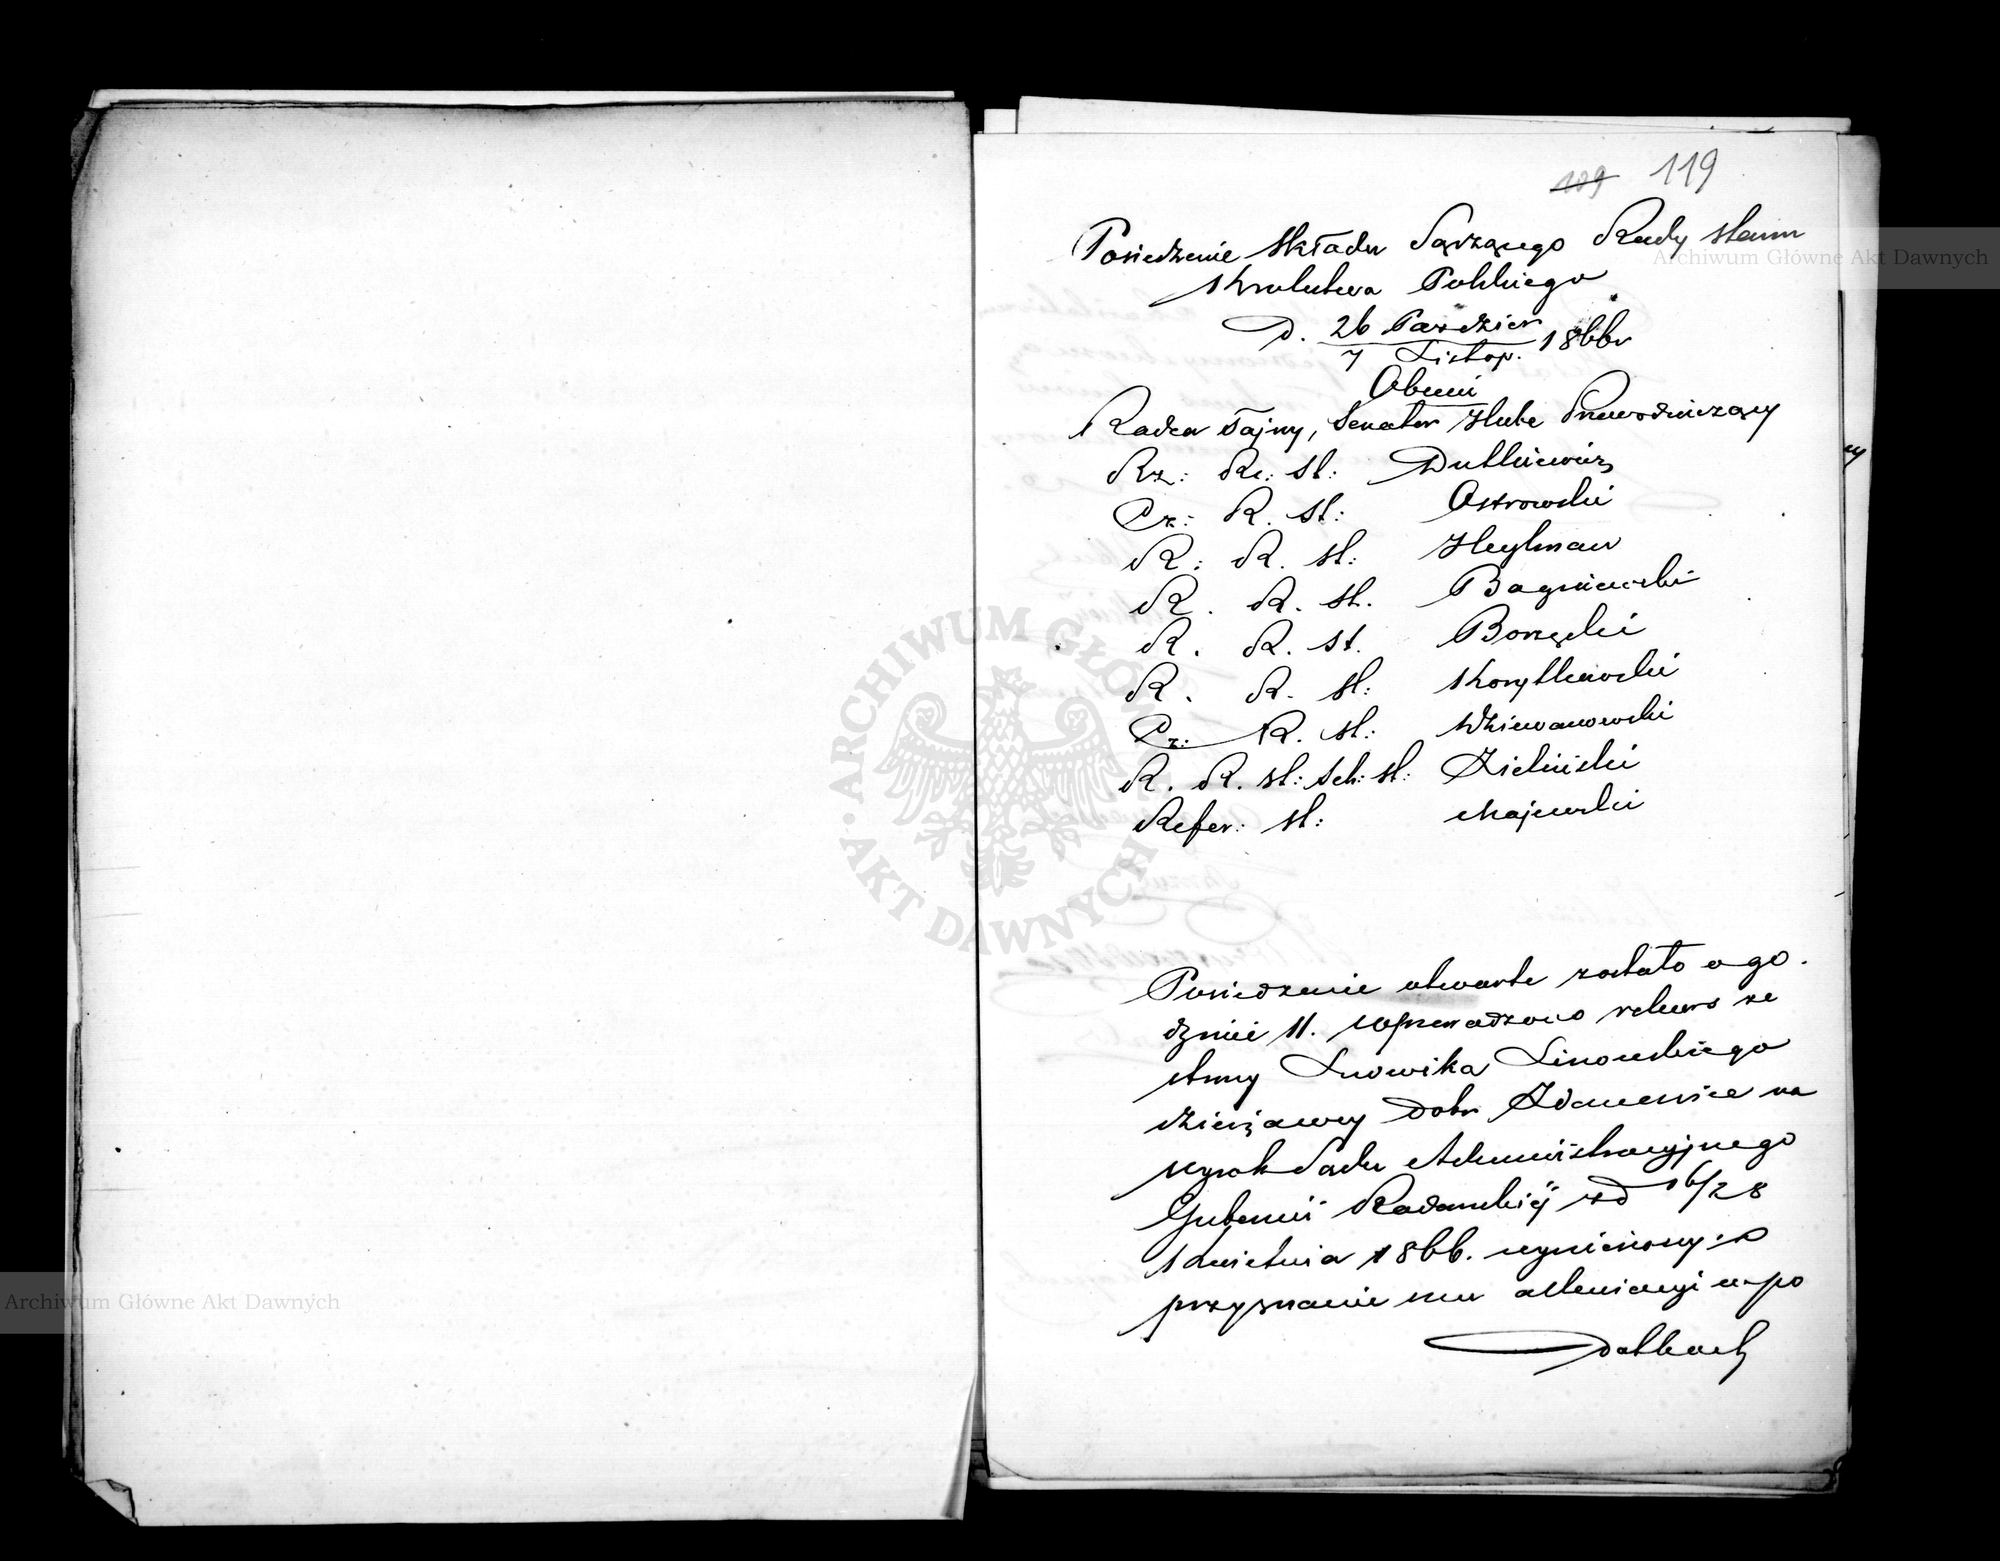 109 119
Posiedzenie Składu Sądzącego Rady Stanu
Królestwa Polskiego
D. 26 Paździer 1866r
7 Listop.
Obecni
Radca Tajny, Senator Hube Przewodniczący
Rz: R: St: Dutkiewicz
Rz: R. St: Ostrowski
R: R. St: Heylman
R. R. St. Bagniewski
R. R. St. Borzęcki
R. R. St: Korytkowski
Rz: R. St: Dziewanowski
R. R. St: Sek: St: Zieliński
Refer: St: Majewski
Posiedzenie otwarte zostało o go-
dzinie 11. wprowadzono rekurs ze
strony Ludwika Linowskiego
dzierżawcy Dóbr Zdanowice na
wyrok Sądu Administracyjnego
Gubernii Radomskiej w d 16/28
Kwietnia 1866. wyniesiony: o
przyznanie mu ewikcyi w po
datkach
Archiwum Główne Akt Dawnych
Archiwum Główne Akt Dawnych
ARCHIWUM GŁÓWNE AKT DAWNYCH